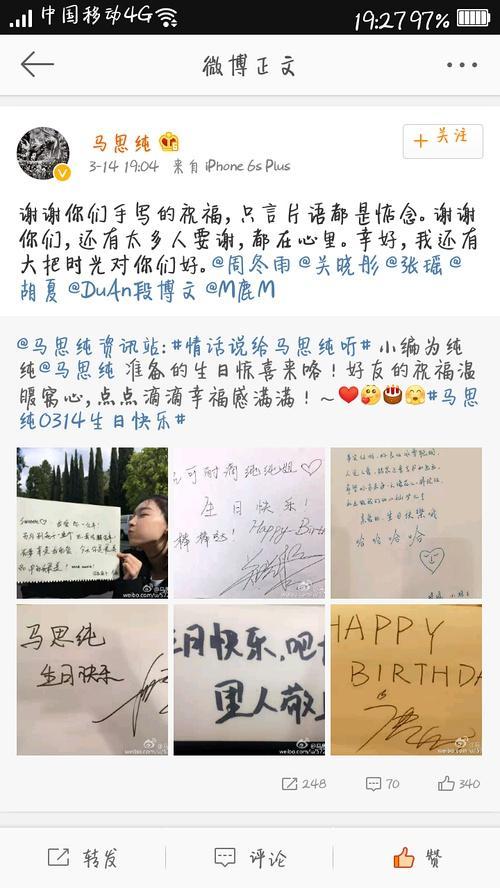 中国移动4G 19:27 97%
微博正文
马思纯
3-14 19:04 来自 iPhone 6s Plus
+ 关注
谢谢你们手写的祝福,只言片语都是惦念。谢谢
你们,还有太多人要谢,都在心里。幸好,我还有
大把时光对你们好。@周冬雨 @关晓彤 @张瑶 @
胡夏 @DuAn段博文 @M鹿M
@马思纯资讯站:#情话说给马思纯听# 小编为纯
纯@马思纯 准备的生日惊喜来咯!好友的祝福温
暖窝心,点点滴滴幸福感满满!~ #马思
纯0314生日快乐#
可耐滴纯纯姐♡
生日快乐!
棒棒哒! Happy Birth
哈哈哈哈
马思纯
生日快乐
生日快乐,吧
里人敬上
HAPPY
BIRTHDA
248 70 340
转发 评论 赞